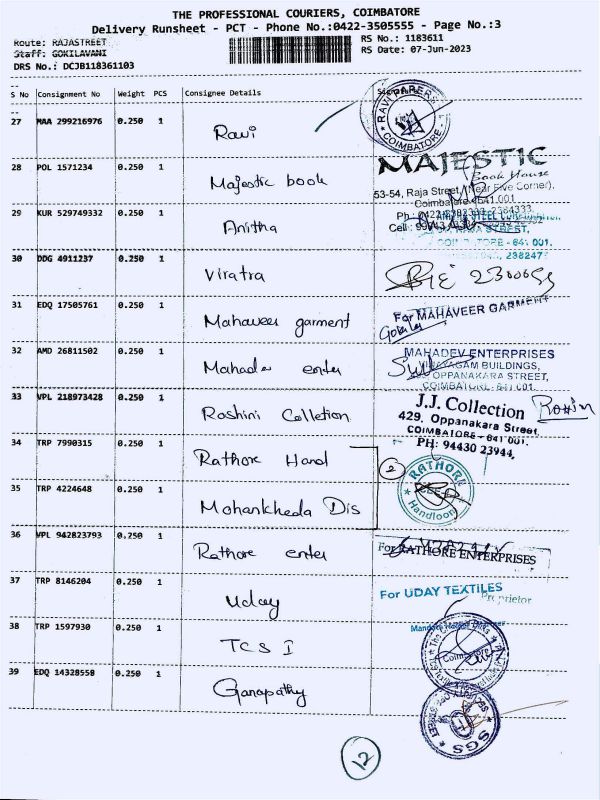 THE PROFESSIONAL COURIERS, COIMBATORE
Delivery Runsheet - PCT - Phone No.:0422-3505555 - Page No.:3
Route: RAJASTREET
RS No.: 1183611
Staff: GOKILAVANI
RS Date: 07-Jun-2023
DRS No.: DCJB118361103
S No Consignment No Weight PCS Consignee Details
27 MAA 299216976 0.250 1 Ravi
RAVI PAPERS COIMBATORE
28 POL 1571234 0.250 1 Majestic book
MAJESTIC
Book House
53-54, Raja Street, (Near Five Corner),
Coimbatore-641 001.
29 KUR 529749332 0.250 1 Anitha
COIMBATORE - 641 001.
30 DDG 4911237 0.250 1 Viratra
31 EDQ 17505761 0.250 1 Mahaveer garment
For MAHAVEER GARMENT
32 AMD 26811502 0.250 1 Mahadev enter
MAHADEV ENTERPRISES
VINAYAGAM BUILDINGS,
OPPANAKARA STREET,
COIMBATORE - 641 001.
33 VPL 218973428 0.250 1 Roshini Colletion
J.J. Collection
429, Oppanakara Street,
COIMBATORE - 641 001.
PH: 94430 23944,
34 TRP 7990315 0.250 1 Rathore Hand
2
RATHORE
Handloom
35 TRP 4224648 0.250 1 Mohankheda Dis
36 VPL 942823793 0.250 1 Rathore enter
For RATHORE ENTERPRISES
37 TRP 8146204 0.250 1 Uday
For UDAY TEXTILES
Proprietor
38 TRP 1597930 0.250 1 TCS I
Coimbatore
39 EDQ 14328558 0.250 1 Ganapathy
SGS
12